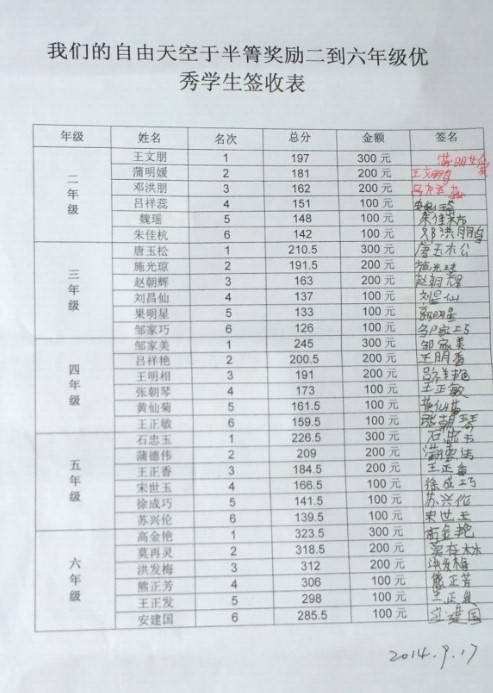 我们的自由天空于半箐奖励二到六年级优
秀学生签收表
年级 姓名 名次 总分 金额 签名
二年级
王文朋 1 197 300元
蒲明媛 2 181 200元
邓洪朋 3 162 200元
吕祥蕊 4 151 100元
魏瑶 5 148 100元
朱佳杭 6 142 100元
三年级
唐玉松 1 210.5 300元
施光琼 2 191.5 200元
赵朝辉 3 163 200元 赵朝辉
刘昌仙 4 137 100元 刘昌仙
果明星 5 133 100元
邹家巧 6 126 100元 邹家巧
四年级
邹家美 1 245 300元 邹家美
吕祥艳 2 200.5 200元
王明相 3 191 200元 吕祥艳
张朝琴 4 173 100元 王正敏
黄仙菊 5 161.5 100元 黄仙菊
王正敏 6 159.5 100元 张朝琴
五年级
石忠玉 1 226.5 300元
蒲德伟 2 209 200元
王正香 3 184.5 200元 王正香
宋世玉 4 166.5 100元 徐成巧
徐成巧 5 141.5 100元 苏兴伦
苏兴伦 6 139.5 100元
六年级
高金艳 1 323.5 300元 高金艳
莫再灵 2 318.5 200元
洪发梅 3 312 200元 洪发梅
熊正芳 4 306 100元 熊正芳
王正发 5 298 100元
安建国 6 285.5 100元
2014.9.17